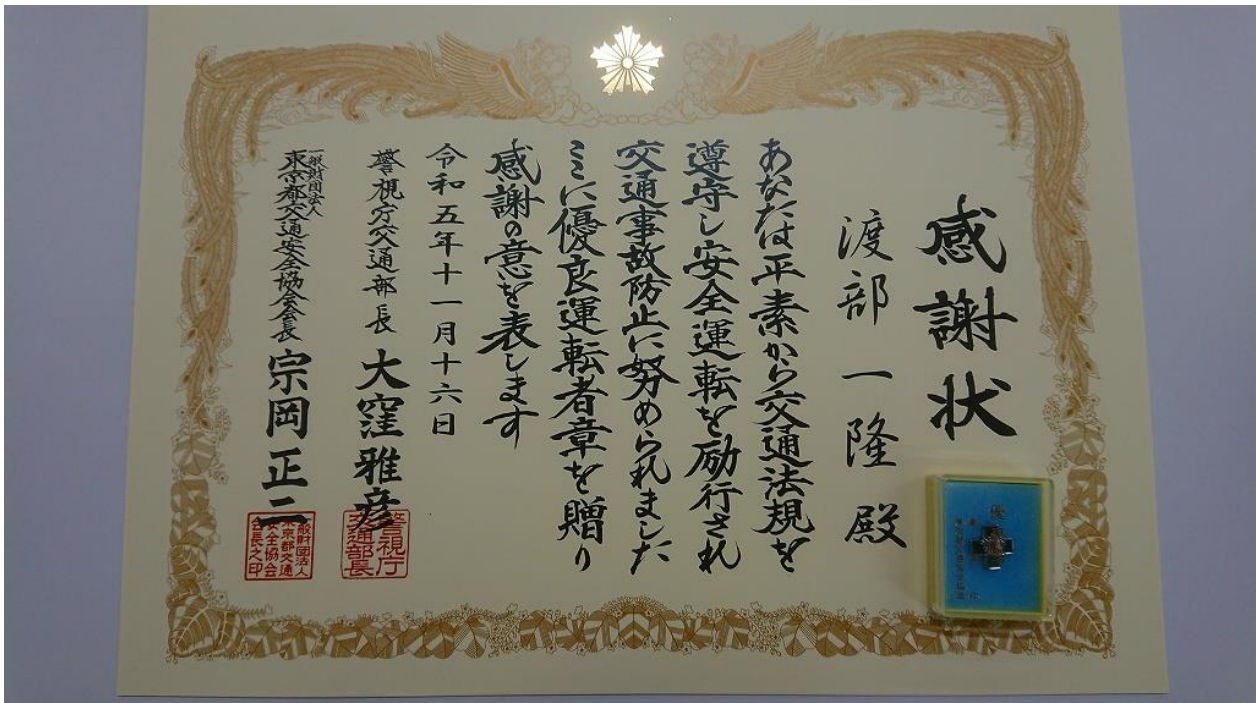 感謝状
渡部一隆殿
あなたは平素から交通法規を
遵守し安全運転を励行され
交通事故防止に努められました
ミに優良運転者章を贈り
感謝の意を表します
令和五年十一月十六日
警視庁交通部長 大窪雅彦
警視庁
交通部長
一般財団法人
東京都交通安全協会会長 宗岡正二
一般財団法人
東京都交通
安全協会
会長之印
優